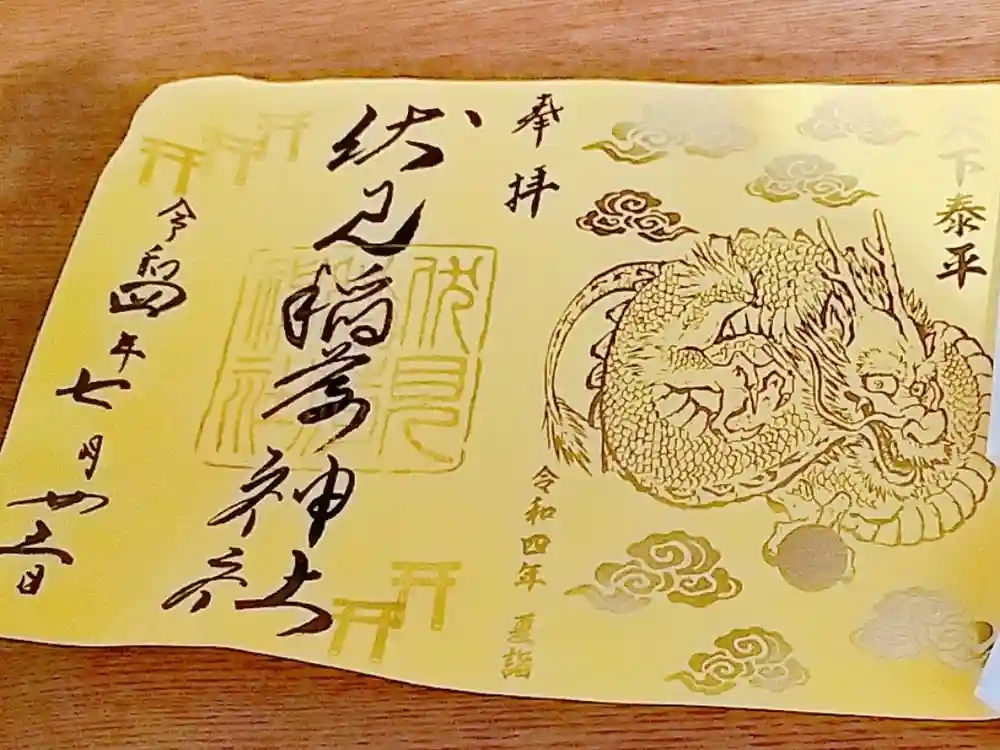 天下泰平
奉拝
令和四年 夏詣
伏見稲荷神社
伏見
稲荷
神社
令和四年七月廿三日